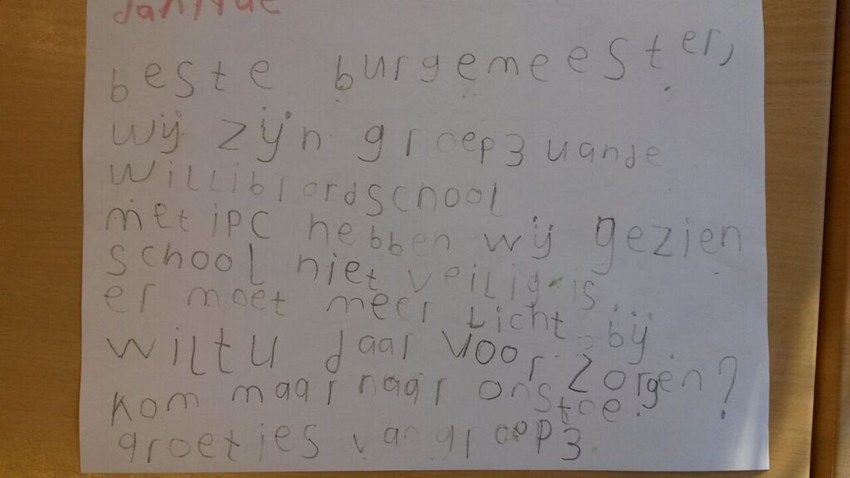 beste burgemeester,
wij zijn groep3 vande
Willibrordschool
met iPC hebben wij gezien
school niet veilig is.
er moet meer Licht bij.
wiltu daar voor zorgen?
kom maar naar ons toe.
groetjes van groep3.